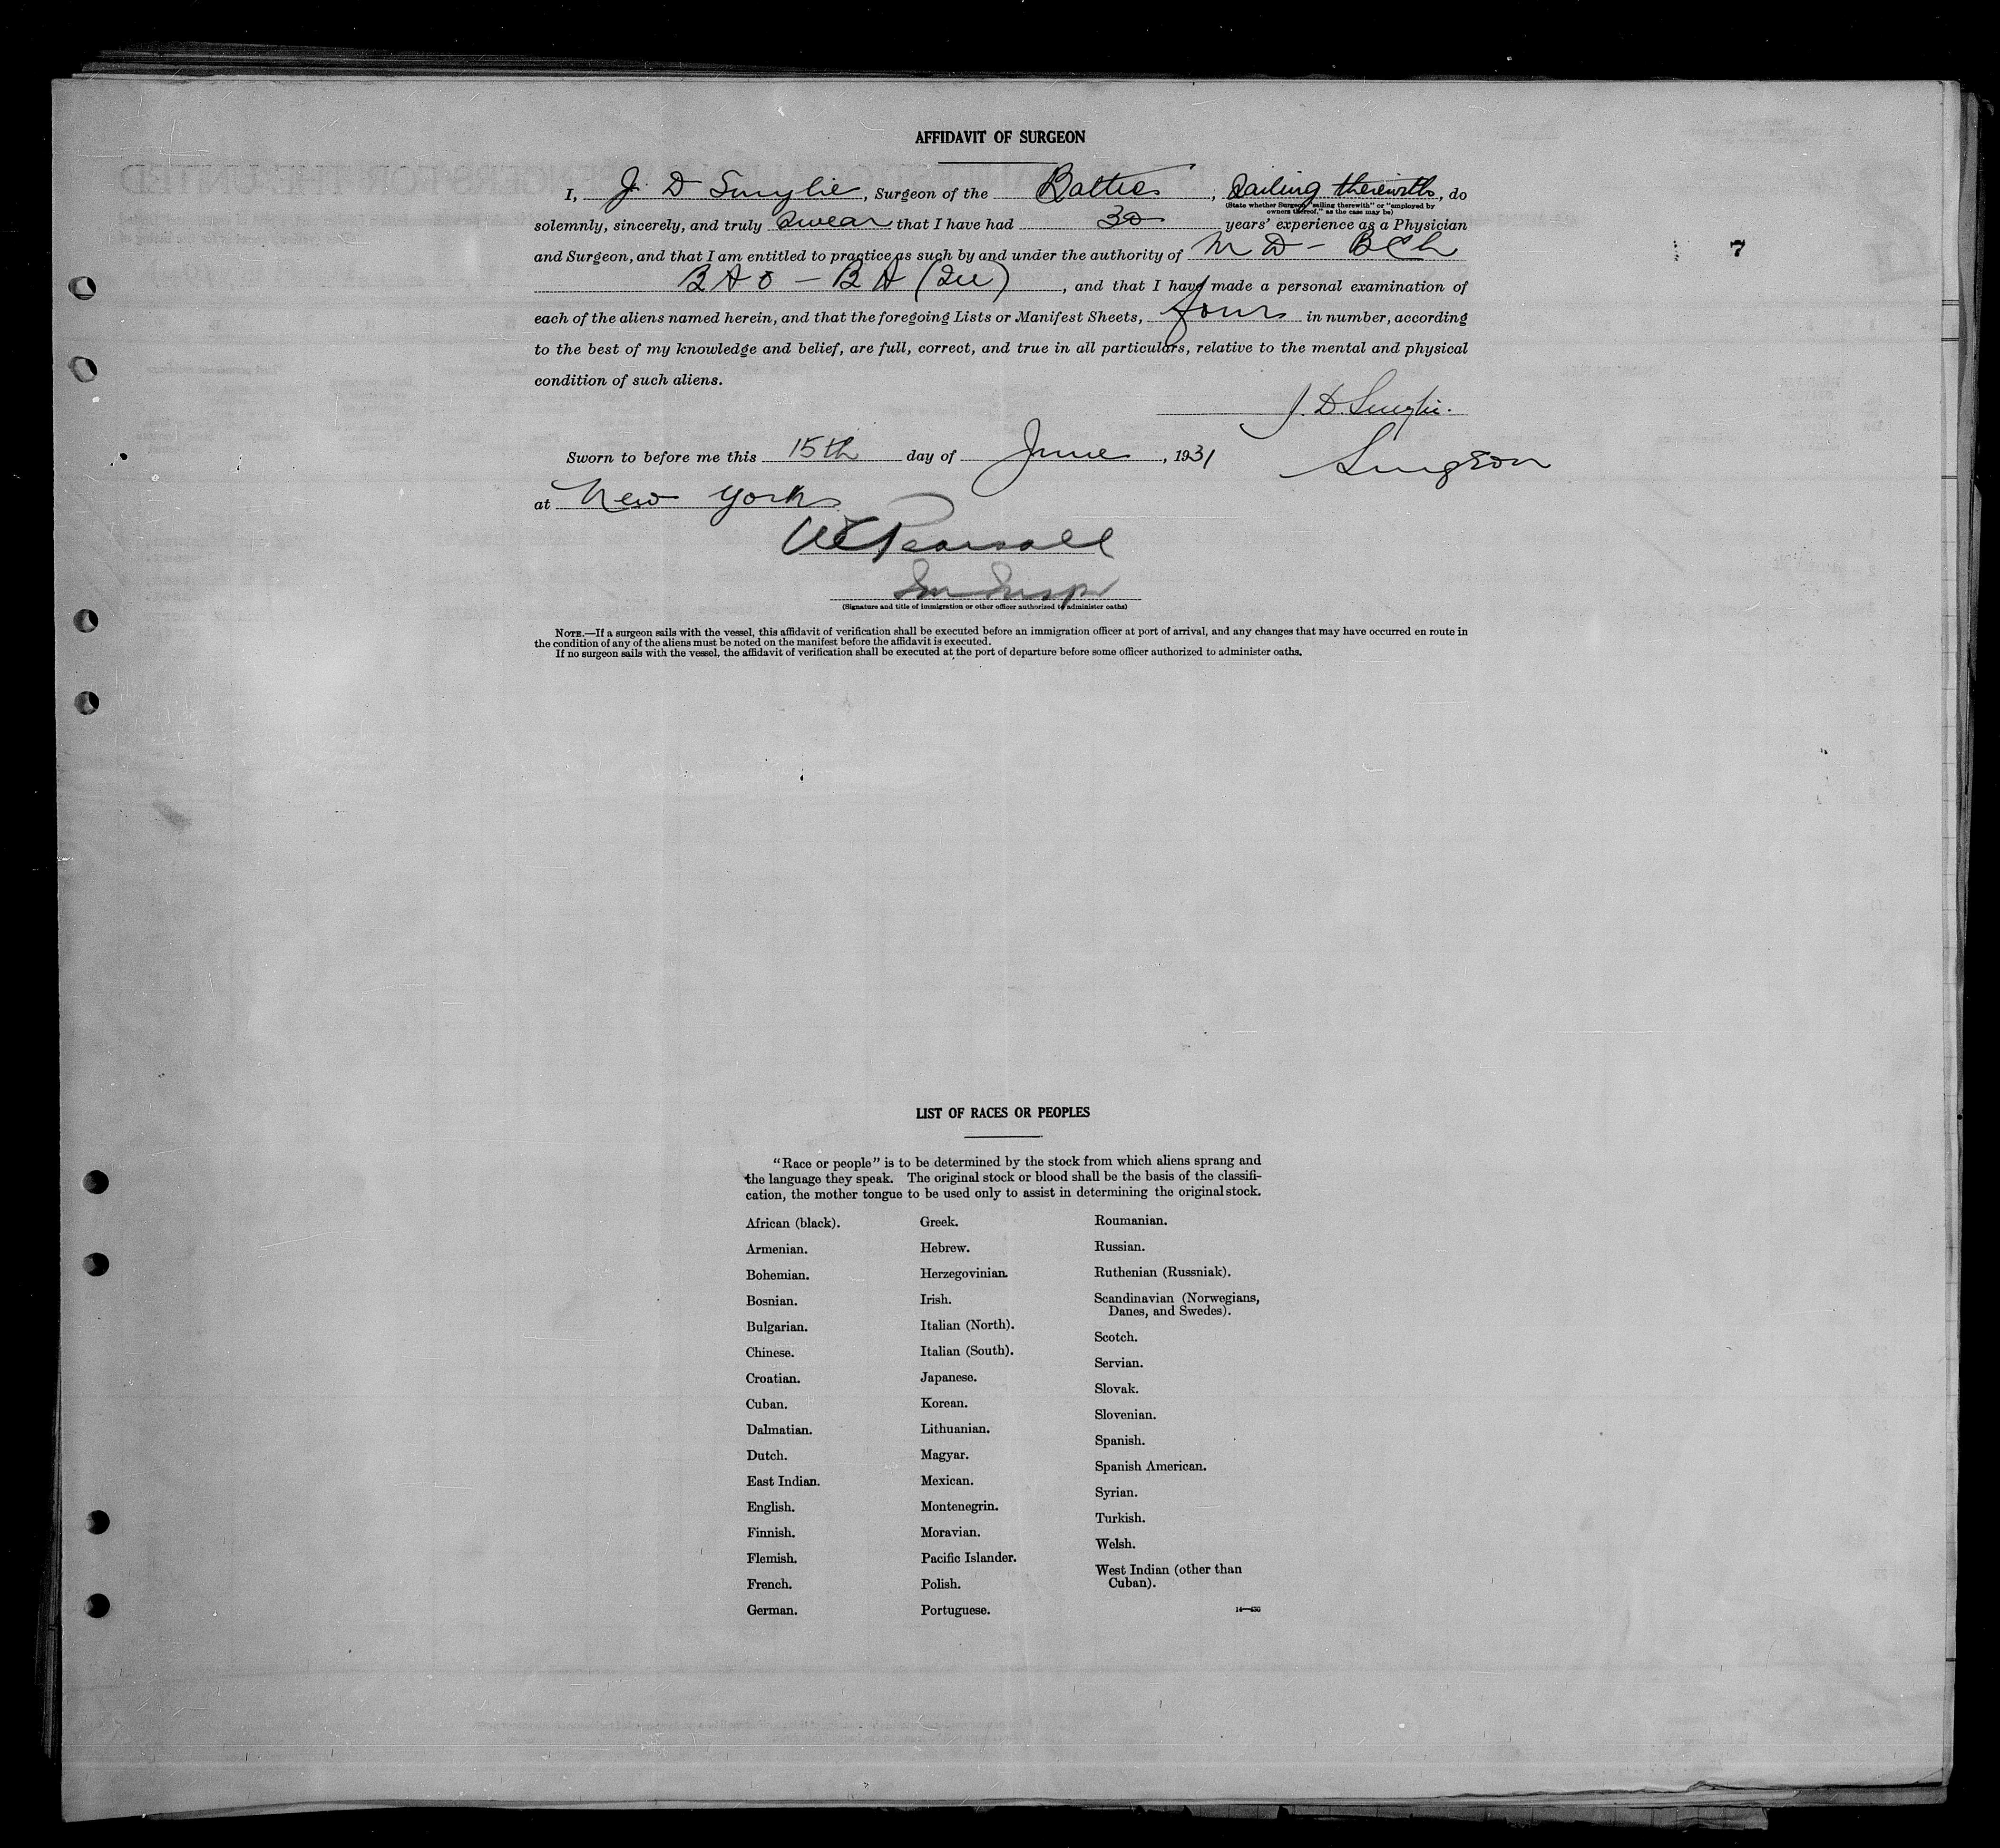 AFFIDAVIT OF SURGEON
I, J. D Smylie, Surgeon of the Baltic, Sailing therewith, do
(State whether Surgeon "sailing therewith" or "employed by
owners thereof," as the case may be)
solemnly, sincerely, and truly swear that I have had 30 years' experience as a Physician
and Surgeon, and that I am entitled to practice as such by and under the authority of M D - B Ch
B A O - B A, and that I have made a personal examination of
each of the aliens named herein, and that the foregoing Lists or Manifest Sheets, four in number, according
to the best of my knowledge and belief, are full, correct, and true in all particulars, relative to the mental and physical
condition of such aliens.
J. D. Smylie.
Surgeon
Sworn to before me this 15th day of June, 1931
at New York
W C Pearsall
Im Insp
(Signature and title of immigration or other officer authorized to administer oaths)
NOTE.—If a surgeon sails with the vessel, this affidavit of verification shall be executed before an immigration officer at port of arrival, and any changes that may have occurred en route in
the condition of any of the aliens must be noted on the manifest before the affidavit is executed.
If no surgeon sails with the vessel, the affidavit of verification shall be executed at the port of departure before some officer authorized to administer oaths.
7
LIST OF RACES OR PEOPLES
"Race or people" is to be determined by the stock from which aliens sprang and
the language they speak. The original stock or blood shall be the basis of the classifi-
cation, the mother tongue to be used only to assist in determining the original stock.
African (black).
Armenian.
Bohemian.
Bosnian.
Bulgarian.
Chinese.
Croatian.
Cuban.
Dalmatian.
Dutch.
East Indian.
English.
Finnish.
Flemish.
French.
German.
Greek.
Hebrew.
Herzegovinian.
Irish.
Italian (North).
Italian (South).
Japanese.
Korean.
Lithuanian.
Magyar.
Mexican.
Montenegrin.
Moravian.
Pacific Islander.
Polish.
Portuguese.
Roumanian.
Russian.
Ruthenian (Russniak).
Scandinavian (Norwegians,
Danes, and Swedes).
Scotch.
Servian.
Slovak.
Slovenian.
Spanish.
Spanish American.
Syrian.
Turkish.
Welsh.
West Indian (other than
Cuban).